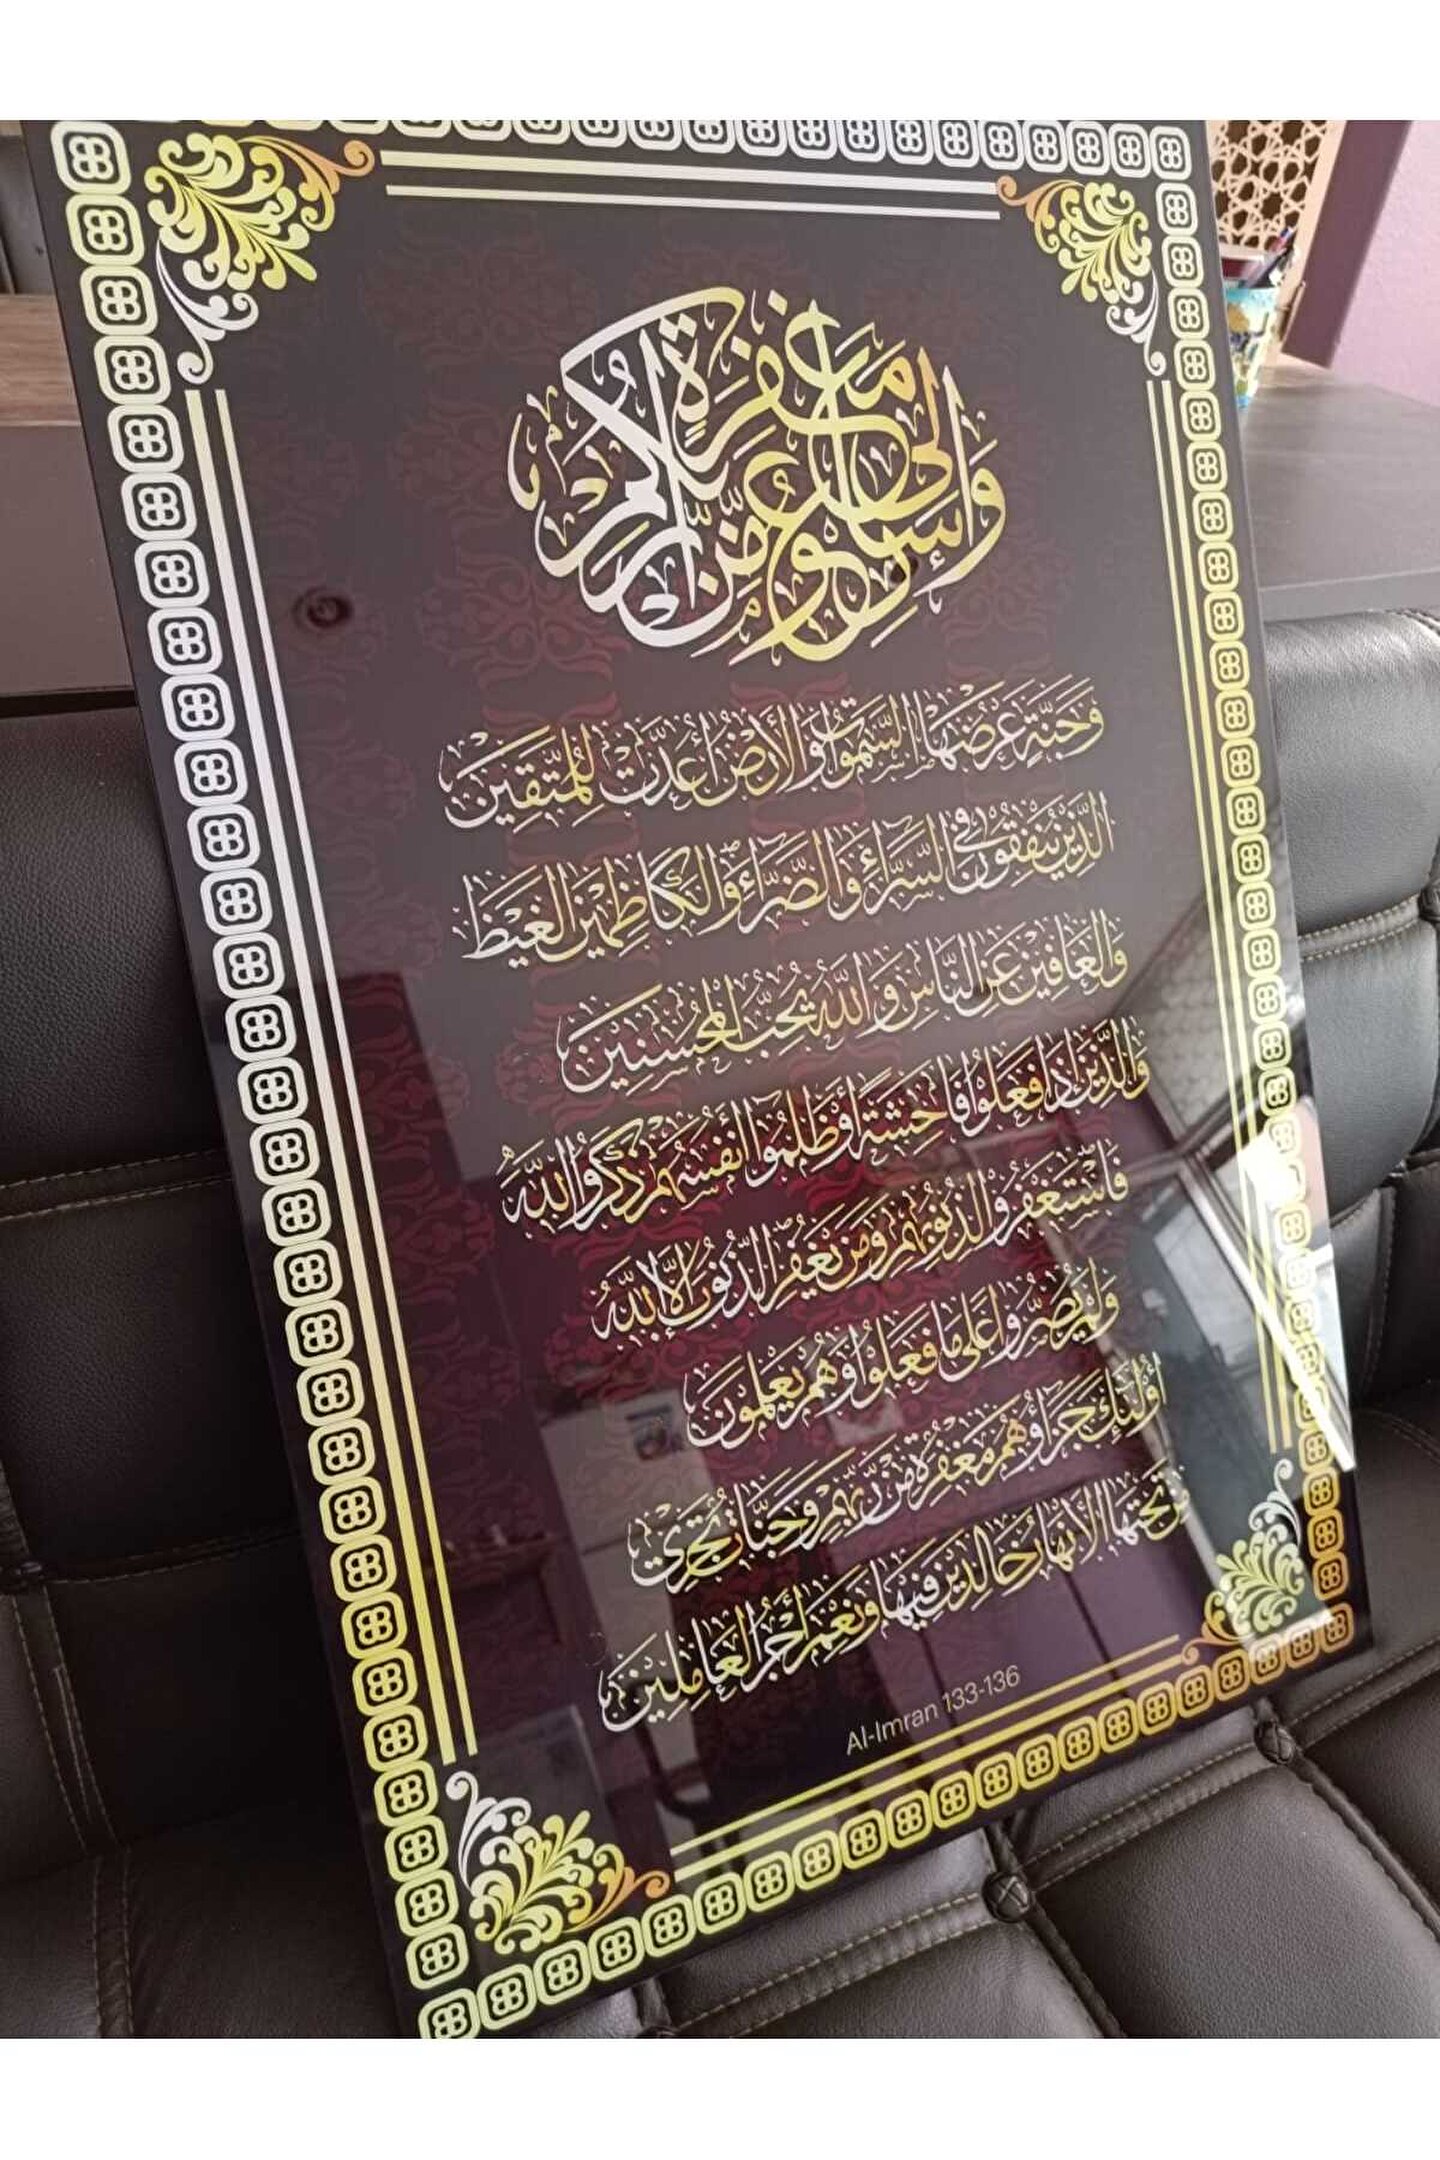 وَسَارِعُوا إِلَى مَغْفِرَةٍ مِّن رَّبِّكُمْ
وَجَنَّةٍ عَرْضُهَا السَّمَٰوَاتُ وَالْأَرْضُ أُعِدَّتْ لِلْمُتَّقِينَ
الَّذِينَ يُنفِقُونَ فِي السَّرَّاءِ وَالضَّرَّاءِ وَالْكَاظِمِينَ الْغَيْظَ
وَالْعَافِينَ عَنِ النَّاسِ وَاللَّهُ يُحِبُّ الْمُحْسِنِينَ
وَالَّذِينَ إِذَا فَعَلُوا فَاحِشَةً أَوْ ظَلَمُوا أَنفُسَهُمْ ذَكَرُوا اللَّهَ
فَاسْتَغْفَرُوا لِذُنُوبِهِمْ وَمَن يَغْفِرُ الذُّنُوبَ إِلَّا اللَّهُ
وَلَمْ يُصِرُّوا عَلَى مَا فَعَلُوا وَهُمْ يَعْلَمُونَ
أُولَٰئِكَ جَزَاؤُهُم مَّغْفِرَةٌ مِّن رَّبِّهِمْ وَجَنَّاتٌ تَجْرِي
مِن تَحْتِهَا الْأَنْهَارُ خَالِدِينَ فِيهَا وَنِعْمَ أَجْرُ الْعَامِلِينَ
Al-Imran 133-136